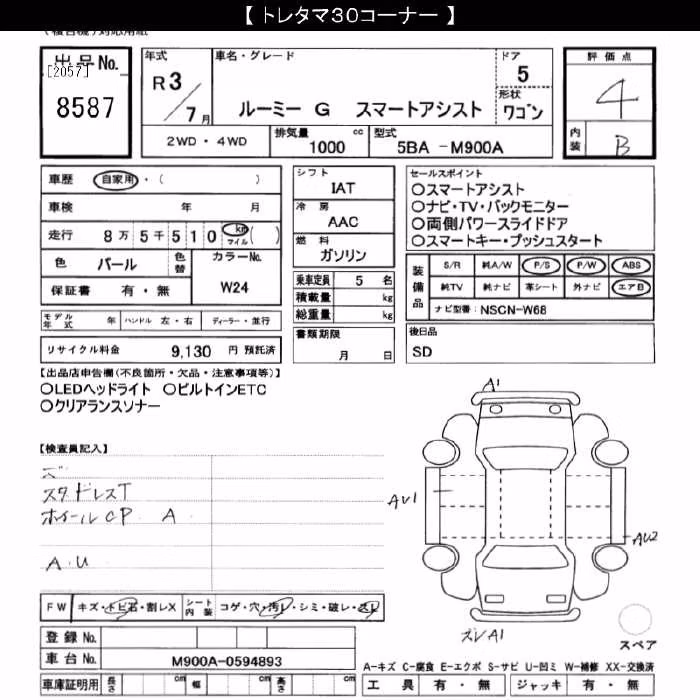 【 トレタマ３０コーナー 】
出品No.
[2057]
8587
年式
R 3 / 7 月
車名・グレード
ルーミー G スマートアシスト
ドア
5
形状
ワゴン
評価点
4
内装
B
2WD ・ 4WD
排気量 cc
1000
型式
5BA －M900A
車歴 自家用 ・ ( )
車検 年 月
走行 8 万 5 千 5 1 0 km マイル ( )
色 パール 色替
カラーNo.
W24
保証書 有 ・ 無
モデル年式 年 ハンドル 左 ・ 右 ディーラー ・ 並行
リサイクル料金 9,130 円 預託済
シフト
IAT
冷房
AAC
燃料
ガソリン
乗車定員 5 名
積載量 kg
総重量 kg
書類期限
月 日
セールスポイント
○スマートアシスト
○ナビ・TV・バックモニター
○両側パワースライドドア
○スマートキー・プッシュスタート
装備品
S/R 純A/W P/S P/W ABS
純TV 純ナビ 革シート 外ナビ エアB
ナビ型番: NSCN-W68
後日品
SD
【出品店申告欄(不良箇所・欠品・注意事項等)】
○LEDヘッドライト ○ビルトインETC
○クリアランスソナー
【検査員記入】
スタドレスT
ホイールCP A
A.U
A1
AU1
AU2
ズレA1
スペア
FW キズ・トビ石・割レX シート内装 コゲ・穴・汚レ・シミ・破レ・スレ
登録 No.
車台 No. M900A-0594893
車庫証明用 長さ cm 幅 cm 高さ cm
A-キズ C-腐食 E-エクボ S-サビ U-凹ミ W-補修 XX-交換済
工具 有 ・ 無 ジャッキ 有 ・ 無